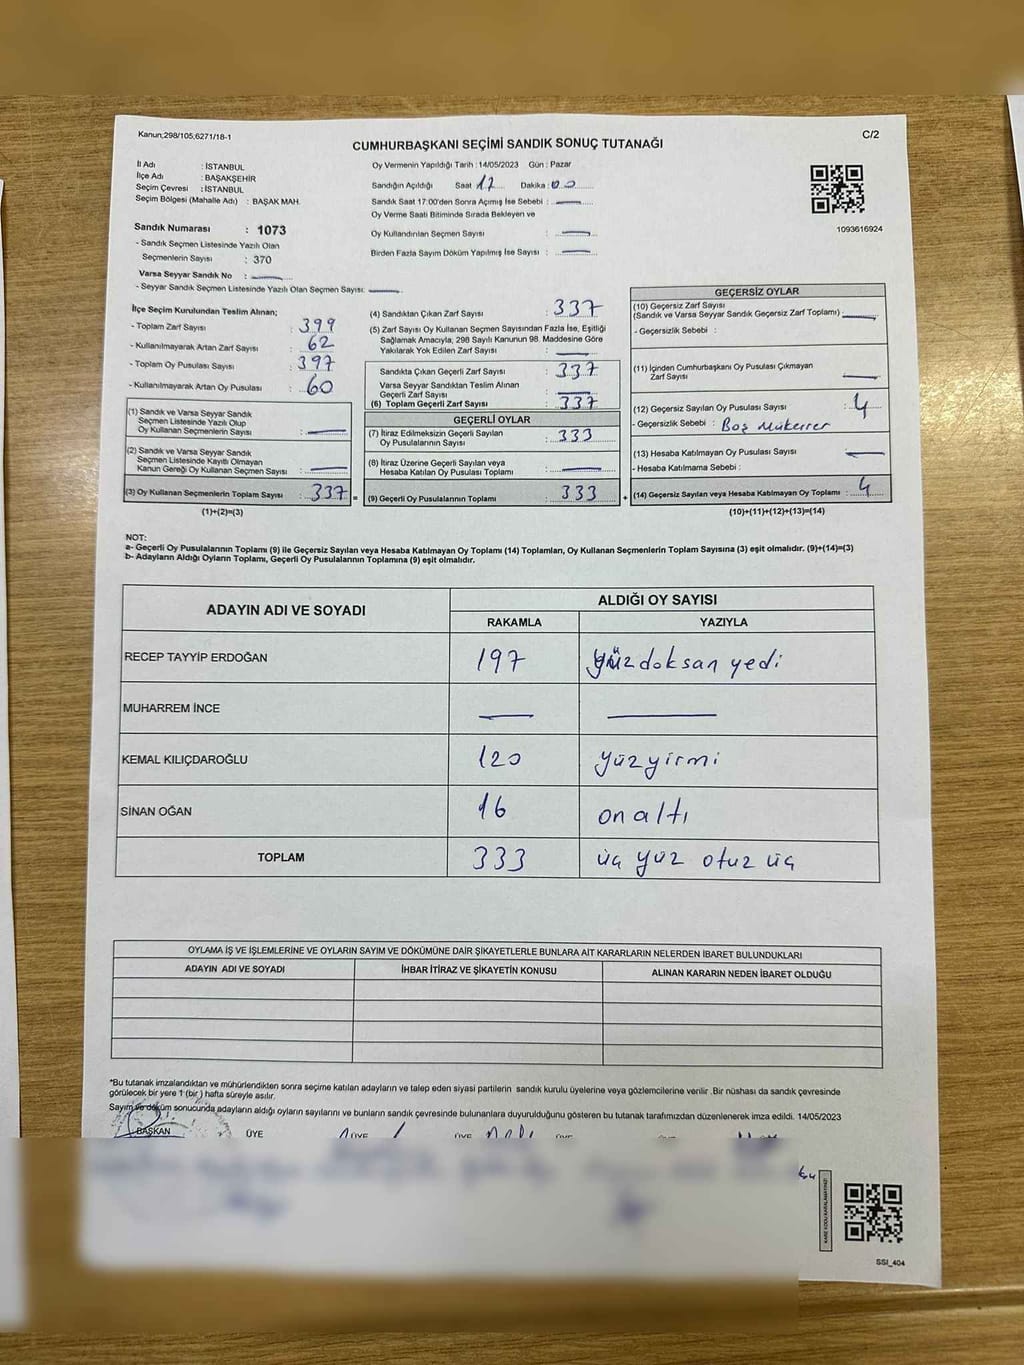 Kanun;298/105;6271/18-1
C/2
CUMHURBAŞKANI SEÇİMİ SANDIK SONUÇ TUTANAĞI
İl Adı : İSTANBUL
İlçe Adı : BAŞAKŞEHİR
Seçim Çevresi : İSTANBUL
Seçim Bölgesi (Mahalle Adı) : BAŞAK MAH.
Sandık Numarası : 1073
- Sandık Seçmen Listesinde Yazılı Olan
Seçmenlerin Sayısı : 370
Varsa Seyyar Sandık No :
- Seyyar Sandık Seçmen Listesinde Yazılı Olan Seçmen Sayısı:
Oy Vermenin Yapıldığı Tarih : 14/05/2023 Gün : Pazar
Sandığın Açıldığı Saat 17 Dakika : 00
Sandık Saat 17:00'den Sonra Açımış İse Sebebi :
Oy Verme Saati Bitiminde Sırada Bekleyen ve
Oy Kullandırılan Seçmen Sayısı :
Birden Fazla Sayım Döküm Yapılmış İse Sayısı :
1093616924
İlçe Seçim Kurulundan Teslim Alınan;
- Toplam Zarf Sayısı : 399
- Kullanılmayarak Artan Zarf Sayısı : 62
- Toplam Oy Pusulası Sayısı : 397
- Kullanılmayarak Artan Oy Pusulası : 60
(1) Sandık ve Varsa Seyyar Sandık
Seçmen Listesinde Yazılı Olup
Oy Kullanan Seçmenlerin Sayısı :
(2) Sandık ve Varsa Seyyar Sandık
Seçmen Listesinde Kayıtlı Olmayan
Kanun Gereği Oy Kullanan Seçmen Sayısı :
(3) Oy Kullanan Seçmenlerin Toplam Sayısı : 337 =
(1)+(2)=(3)
(4) Sandıktan Çıkan Zarf Sayısı : 337
(5) Zarf Sayısı Oy Kullanan Seçmen Sayısından Fazla İse, Eşitliği
Sağlamak Amacıyla, 298 Sayılı Kanunun 98. Maddesine Göre
Yakılarak Yok Edilen Zarf Sayısı :
Sandıkta Çıkan Geçerli Zarf Sayısı : 337
Varsa Seyyar Sandıktan Teslim Alınan
Geçerli Zarf Sayısı :
(6) Toplam Geçerli Zarf Sayısı : 337
GEÇERLİ OYLAR
(7) İtiraz Edilmeksizin Geçerli Sayılan
Oy Pusulalarının Sayısı : 333
(8) İtiraz Üzerine Geçerli Sayılan veya
Hesaba Katılan Oy Pusulası Toplamı :
(9) Geçerli Oy Pusulalarının Toplamı : 333 +
GEÇERSİZ OYLAR
(10) Geçersiz Zarf Sayısı
(Sandık ve Varsa Seyyar Sandık Geçersiz Zarf Toplamı) :
- Geçersizlik Sebebi :
(11) İçinden Cumhurbaşkanı Oy Pusulası Çıkmayan
Zarf Sayısı :
(12) Geçersiz Sayılan Oy Pusulası Sayısı : 4
- Geçersizlik Sebebi : Boş Mükerrer
(13) Hesaba Katılmayan Oy Pusulası Sayısı :
- Hesaba Katılmama Sebebi :
(14) Geçersiz Sayılan veya Hesaba Katılmayan Oy Toplamı : 4
(10)+(11)+(12)+(13)=(14)
NOT:
a- Geçerli Oy Pusulalarının Toplamı (9) ile Geçersiz Sayılan veya Hesaba Katılmayan Oy Toplamı (14) Toplamları, Oy Kullanan Seçmenlerin Toplam Sayısına (3) eşit olmalıdır. (9)+(14)=(3)
b- Adayların Aldığı Oyların Toplamı, Geçerli Oy Pusulalarının Toplamına (9) eşit olmalıdır.
ADAYIN ADI VE SOYADI
ALDIĞI OY SAYISI
RAKAMLA YAZIYLA
RECEP TAYYİP ERDOĞAN 197 yüzdoksan yedi
MUHARREM İNCE
KEMAL KILIÇDAROĞLU 120 yüzyirmi
SİNAN OĞAN 16 onaltı
TOPLAM 333 üç yüz otuz üç
OYLAMA İŞ VE İŞLEMLERİNE VE OYLARIN SAYIM VE DÖKÜMÜNE DAİR ŞİKAYETLERLE BUNLARA AİT KARARLARIN NELERDEN İBARET BULUNDUKLARI
ADAYIN ADI VE SOYADI İHBAR İTİRAZ VE ŞİKAYETİN KONUSU ALINAN KARARIN NEDEN İBARET OLDUĞU
*Bu tutanak imzalandıktan ve mühürlendikten sonra seçime katılan adayların ve talep eden siyasi partilerin sandık kurulu üyelerine veya gözlemcilerine verilir. Bir nüshası da sandık çevresinde
görülecek bir yere 1 (bir) hafta süreyle asılır.
Sayım ve döküm sonucunda adayların aldığı oyların sayılarını ve bunların sandık çevresinde bulunanlara duyurulduğunu gösteren bu tutanak tarafımızdan düzenlenerek imza edildi. 14/05/2023
BAŞKAN ÜYE
SSI_404